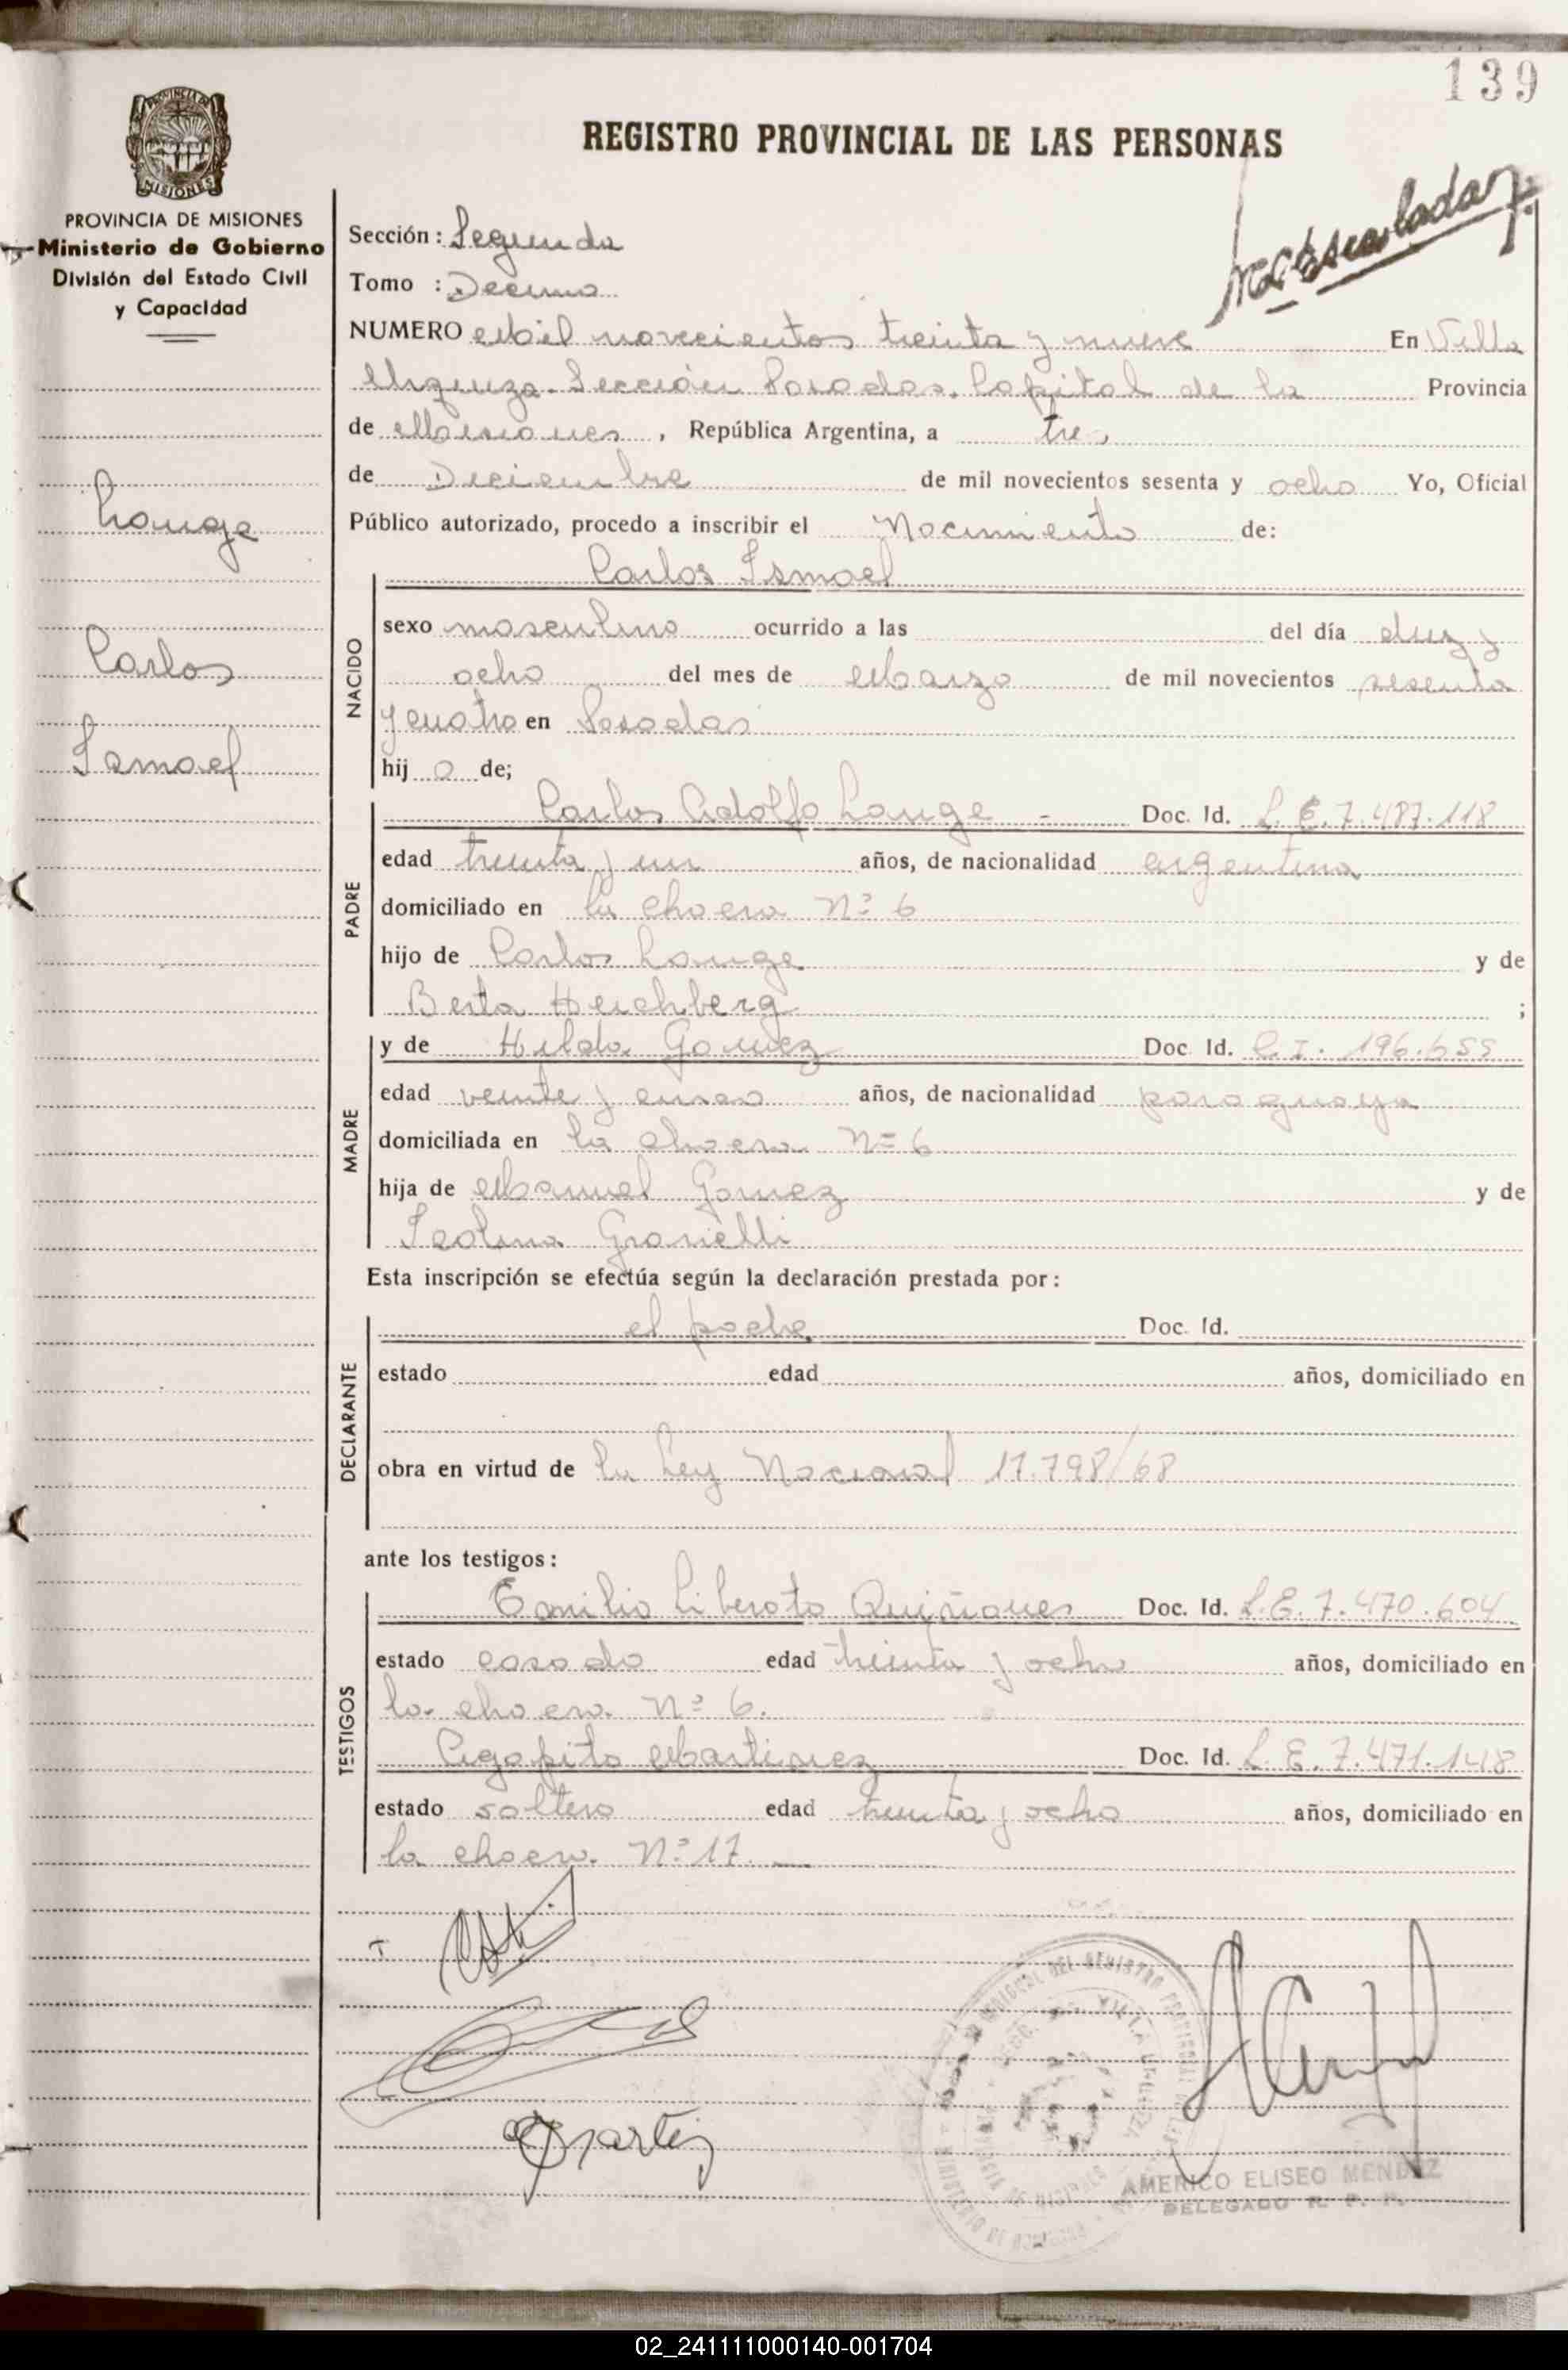 139
REGISTRO PROVINCIAL DE LAS PERSONAS
PROVINCIA DE MISIONES
MISIONES
PROVINCIA DE MISIONES
Ministerio de Gobierno
División del Estado Civil
y Capacidad
Sección: Segunda
Tomo : Decimo
NUMERO Mil novecientos treinta y nueve En Villa
Urquiza. Sección Posadas. Capital de la Provincia
de Misiones, República Argentina, a tres
de Diciembre de mil novecientos sesenta y ocho Yo, Oficial
Público autorizado, procedo a inscribir el Nacimiento de:
Lange
Carlos
Ismael
NACIDO
Carlos Ismael
sexo masculino ocurrido a las del día diez y
ocho del mes de Marzo de mil novecientos sesenta
y cuatro en Posadas
hij o de;
PADRE
Carlos Adolfo Lange - Doc. Id. L.E. 7.487.118
edad treinta y un años, de nacionalidad argentina
domiciliado en la chacra Nº 6
hijo de Carlos Lange y de
Berta Herchberg ;
MADRE
y de Hilda Gomez Doc. Id. C.I. 196.655
edad veinte y cinco años, de nacionalidad paraguaya
domiciliada en la chacra Nº 6
hija de Manuel Gomez y de
Isolina
Esta inscripción se efectúa según la declaración prestada por:
DECLARANTE
el padre Doc. Id.
estado edad años, domiciliado en
obra en virtud de la Ley Nacional 17.798/68
ante los testigos:
TESTIGOS
Emilio Liberato Quiñones Doc. Id. L.E. 7.470.604
estado casado edad treinta y ocho años, domiciliado en
la chacra Nº 6.
Agapito Martinez Doc. Id. L.E. 7.471.148
estado soltero edad treinta y ocho años, domiciliado en
la chacra Nº 17.
AMERICO ELISEO MENDEZ
DELEGADO R. P. P.
02_241111000140-001704